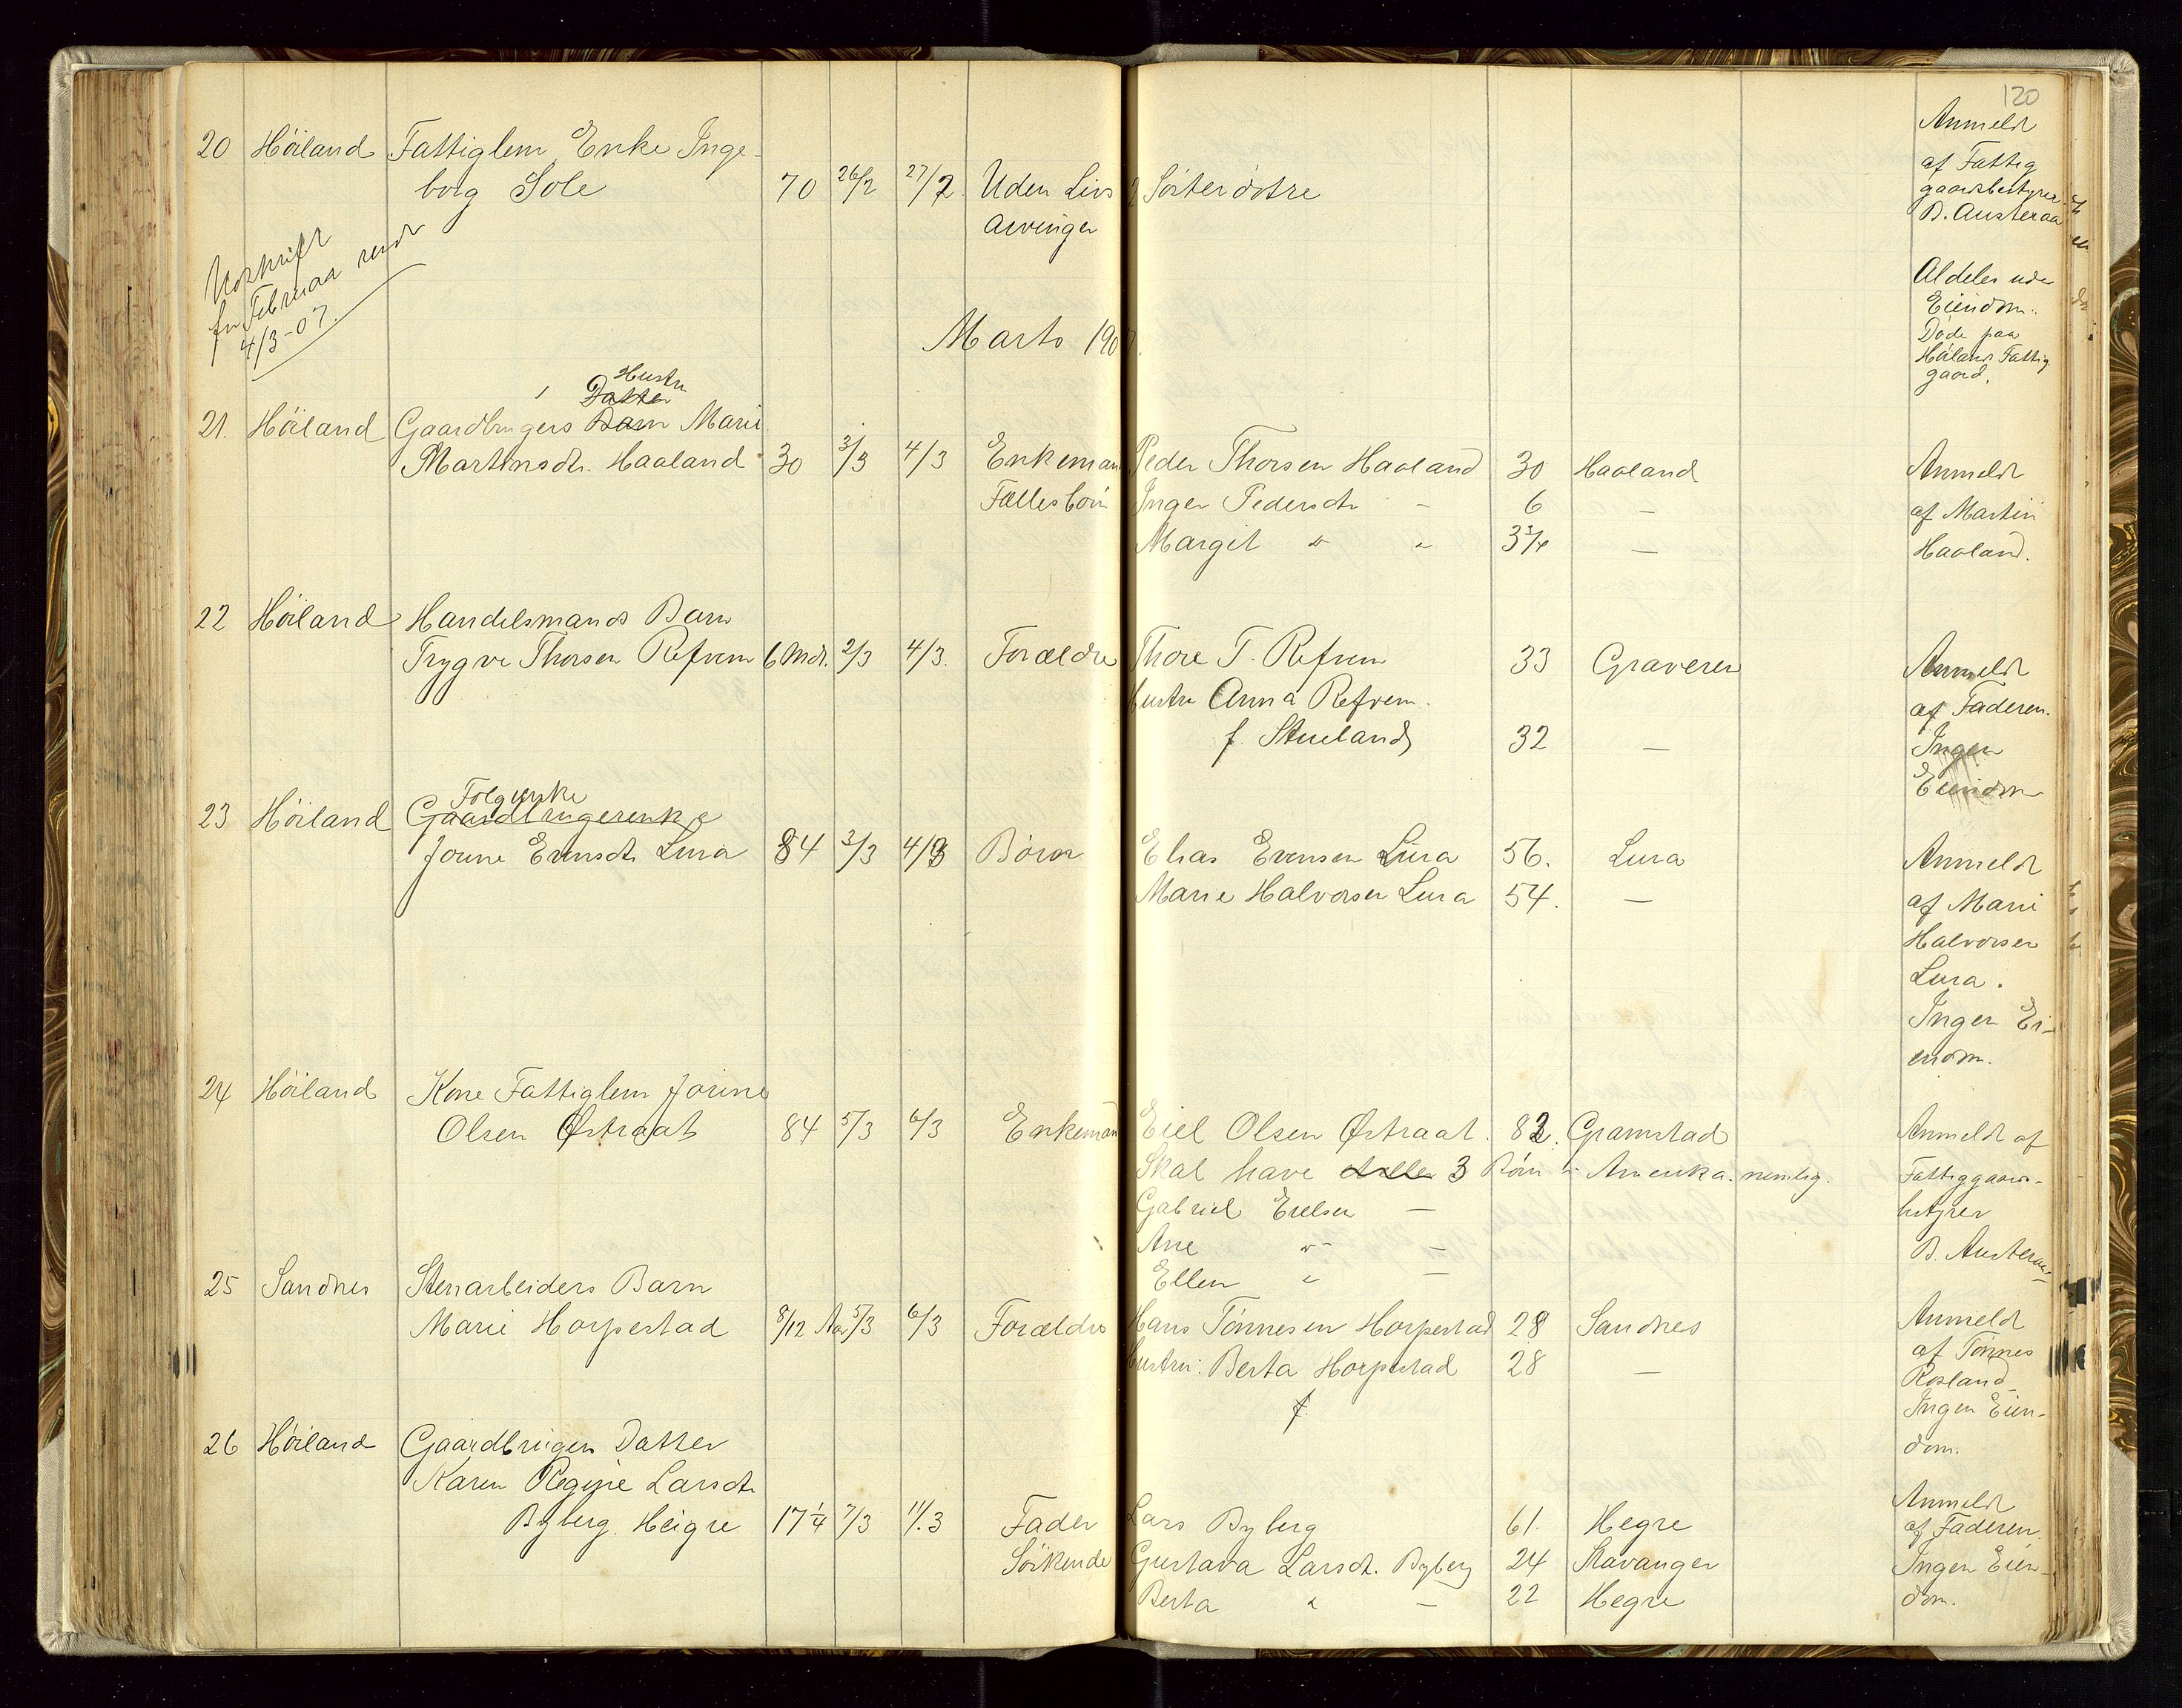 120
20 Höiland Fattiglem Enke Inge-
borg Sole 70 26/2 27/2 Uden Livs Søsterdøtre
Arvinger
Anmeldt
af Fattig
gaardsbestyrer
B. Austeraa
Aldeles uden
Eiendom.
Døde paa
Hölands Fattig
gaard.
Udskrift
for Februar sendt
4/3-07.
Marts 1907.
Hustru
Datter
21. Höiland Gaardbrugers Barn Marie
Martinsdt. Haaland 30 3/3 4/3 Enkemand Peder Thorsen Haaland 30 Haaland
Fællesbörn Inger Pedersdt - 6 -
Margit " " 3 1/4 -
Anmeldt
af Martin
Haaland.
22 Höiland Handelsmands Barn
Trygve Thorsen Refvem 6 Mdr. 2/3 4/3. Forældre Thore T. Refvem 33 Graveren
Hustru Anna Refvem.
f. Stueland 32 -
Anmeldt
af Faderen.
Ingen
Eiendom
Folgeenke
23 Höiland Gaardbrugerenke
Jorine Evensdt. Lura 84 3/3 4/3 Börn Elias Evensen Lura 56. Lura
Marie Halvorsen Lura 54. -
Anmeldt
af Marie
Halvorsen
Lura.
Ingen Ei-
endom.
24 Höiland Kone Fattiglem Jorine
Olsen Østraat 84 5/3 6/3 Enkemand Eiel Olsen Østraat. 82. Gramstad
Skal have 3 Börn i Amerika. nemlig.
Gabriel Eielsen -
Ane " -
Ellen " -
Anmeldt af
Fattiggaards-
bestyrer
B. Austeraa
25 Sandnes Stenarbeiders Barn
Marie Horpestad 8/12 Aar 5/3 6/3 Forældre Hans Tönnesen Horpestad 28 Sandnes
Hustru: Berta Horpestad 28 -
f.
Anmeldt
af Tönnes
Rosland
Ingen Eien-
dom.
26 Höiland Gaardbruger Datter
Karen Regine Larsdt
Byberg Heigre 17 1/4 7/3 11/3 Fader Lars Byberg 61. Hegre
Söskende Gustava Larsdt. Byberg 24 Stavanger
Berta " - 22 Hegre
Anmeldt
af Faderen.
Ingen Eien-
dom.